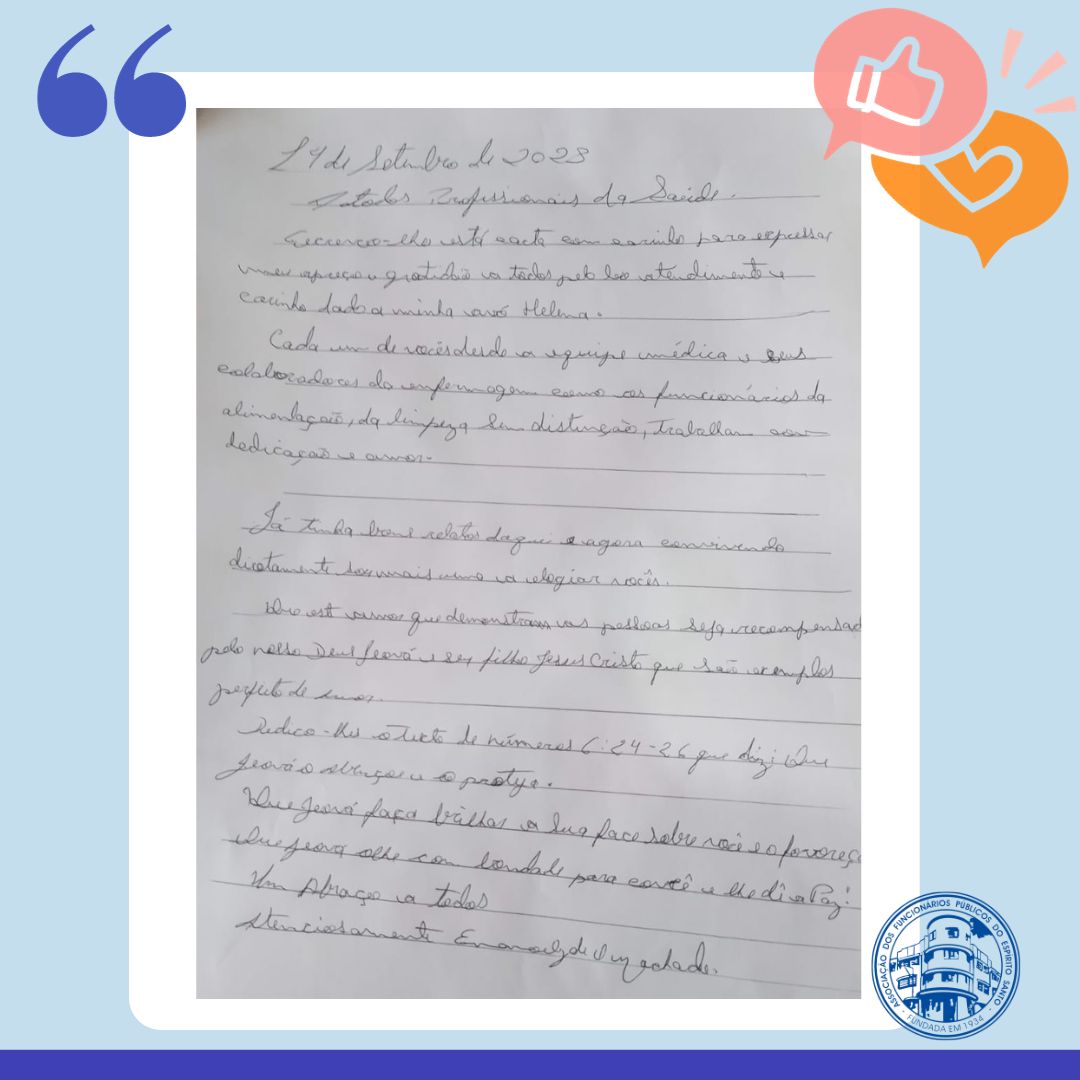 19 de Setembro de 2023
A todos Profissionais da Saúde.
Escrevo-lhe está carta com carinho para expressar
meu apreço e gratidão a todos pelo bão atendimento e
carinho dado a minha avó Helena.
Cada um de vocês desde a equipe médica e seus
colaboradores da enfermagem como os funcionários da
alimentação, da limpeza sem distinção, trabalham com
dedicação e amor.
Já tinha bons relatos daqui e agora convivendo
diretamente sou mais uma a elogiar vocês.
Que esti amor que demonstram as pessoas seja recompensad
pelo nosso Deus Jeová e seu filho Jesus Cristo que são exemplos
perfeito de amor.
Dedico-lhes o texto de números 6:24-26 que diz; Que
Jeová o abençoe e o proteja.
Que Jeová faça brilhar a sua face sobre você e o favoreça
Que Jeová olhe com bondade para você e lhe dê a Paz!
Um Abraço a todos
Atenciosamente
ASSOCIAÇÃO DOS FUNCIONÁRIOS PÚBLICOS DO ESPÍRITO SANTO
· FUNDADA EM 1934 ·